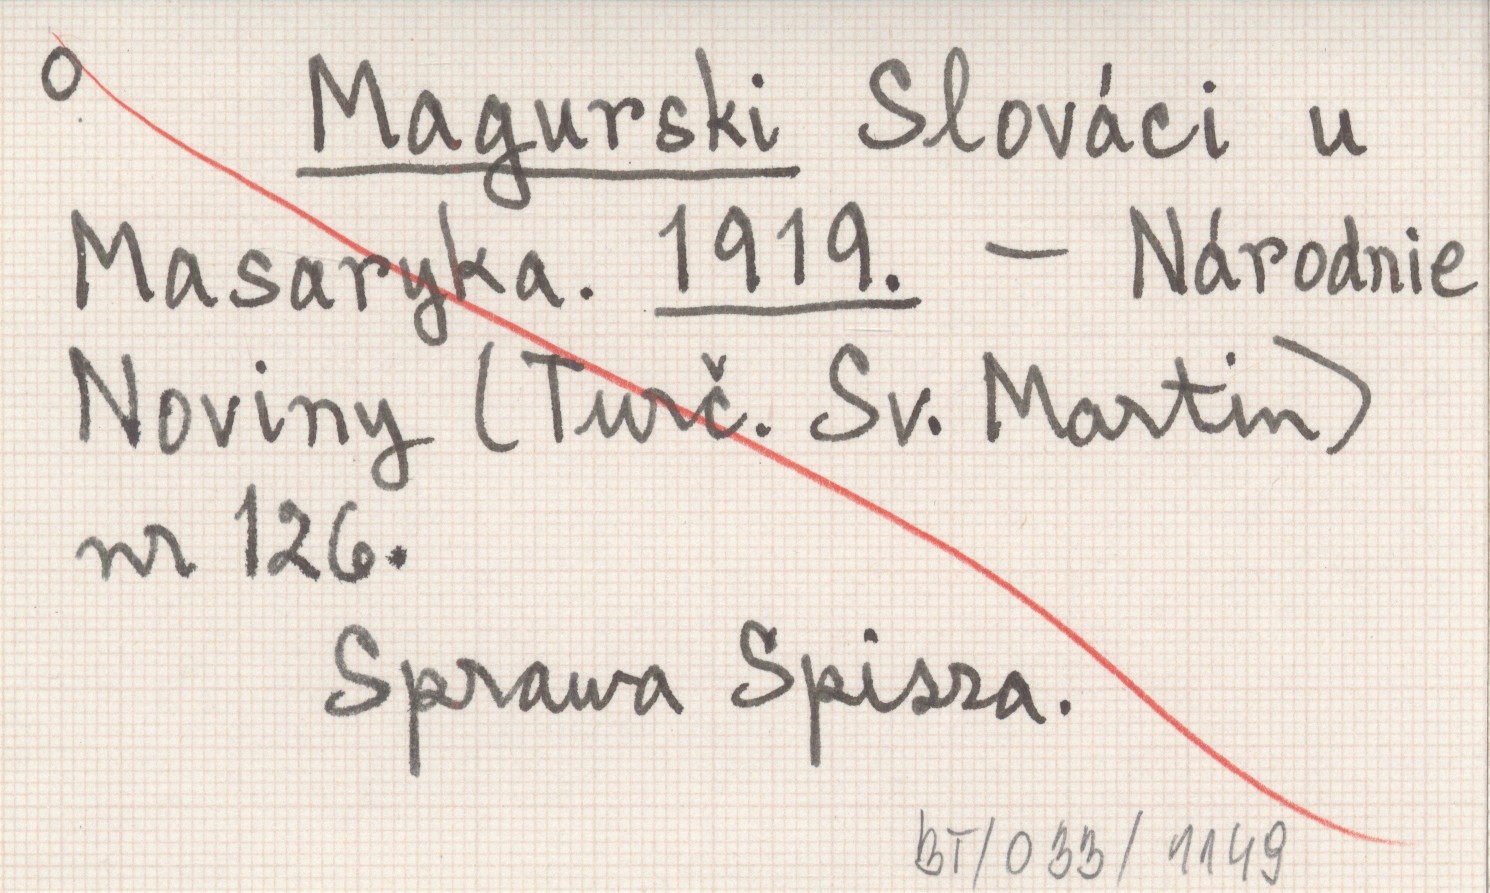 O
Magurski Slováci u
Masaryka. 1919. – Národnie
Noviny (Turč. Sv. Martin)
nr 126.
Sprawa Spisza.
BT/033/1149